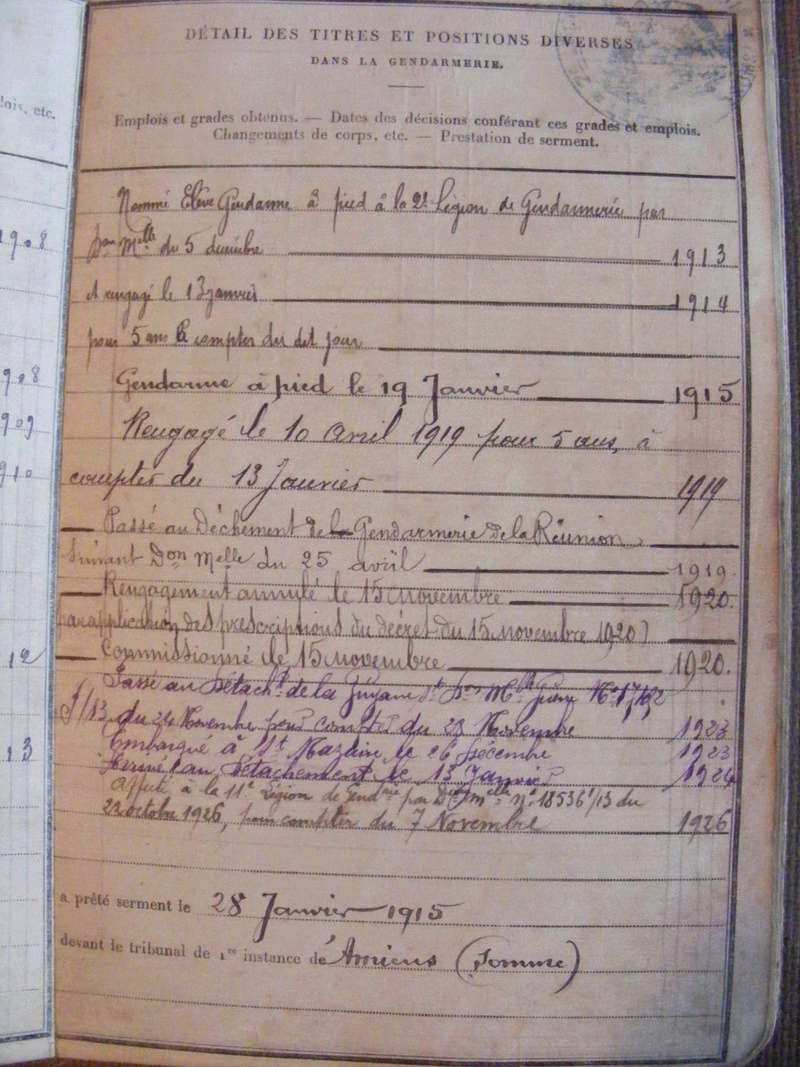 DÉTAIL DES TITRES ET POSITIONS DIVERSES
DANS LA GENDARMERIE.
Emplois et grades obtenus. — Dates des décisions conférant ces grades et emplois.
Changements de corps, etc. — Prestation de serment.
lois, etc.
Nommé Elève Gendarme à pied à la 2e Légion de Gendarmerie par
1908
Don Melle du 5 décembre 1913
et rengagé le 13 janvier 1914
pour 5 ans à compter du dit jour
908
Gendarme à pied le 19 Janvier 1915
909
Rengagé le 10 avril 1919 pour 5 ans, à
910
compter du 13 Janvier 1919
Passé au Déchement de la Gendarmerie de la Réunion,
suivant Don Melle du 25 avril 1919.
Rengagement annulé le 15 novembre 1920.
par application des prescriptions du décret du 15 novembre 1920)
12
Commissionné le 15 novembre 1920.
Passé au Détacht de la Guyane
du 24 Novembre pour compter du 28 Novembre 1923
13
Embarqué à St Nazaire le 26 Décembre 1923
Arrivé au Détachement le 13 Janvier 1924
Affecté à la 11e Légion de Gendrie par Don Melle No 18536 1/13 du
22 octobre 1926, pour compter du 7 Novembre 1926
a prêté serment le 28 Janvier 1915
devant le tribunal de 1re instance de Amiens (Somme)